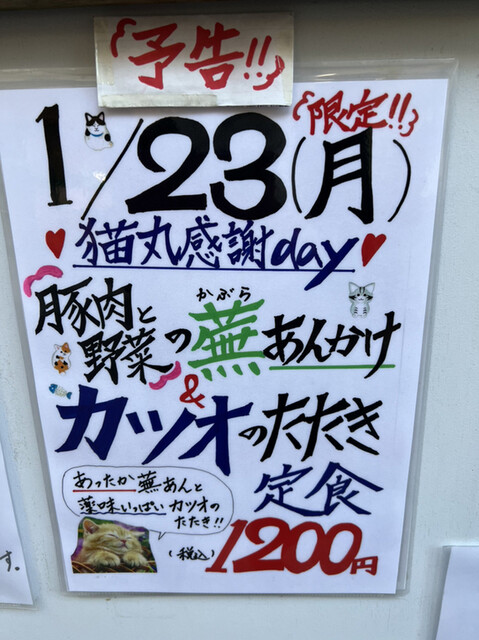 予告!!
1/23(月)
限定!!
猫丸感謝day
豚肉と
野菜の
かぶら
蕪あんかけ
&
カツオのたたき
定食
あったか蕪あんと
薬味いっぱいカツオの
たたき!!
(税込)
1200円
す。